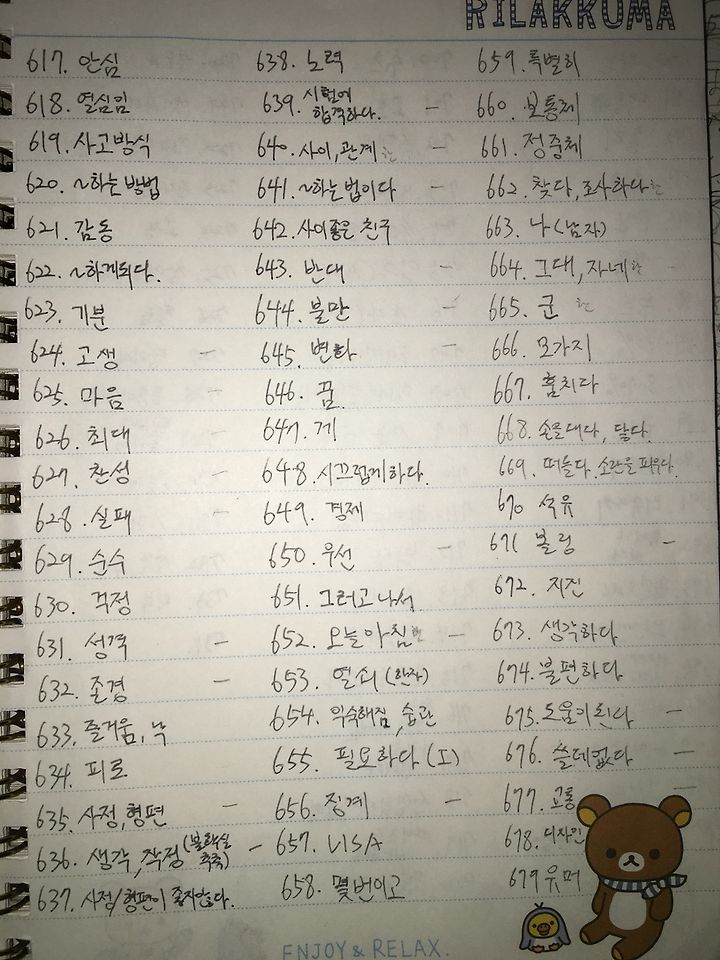 RILAKKUMA
617. 안심
618. 열심임
619. 사고방식
620. ~하는 방법
621. 감동
622. ~하게되다.
623. 기분
624. 고생 -
625. 마음 -
626. 최대
627. 찬성 -
628. 실패
629. 순수
630. 걱정
631. 성격 -
632. 존경
633. 즐거움, 낙
634. 피로
635. 사정, 형편 -
636. 생각, 작정 (불확실 추측) -
637. 사정/형편이 좋지않다.
638. 노력
639. 시험에 합격하다. -
640. 사이, 관계 한
641. ~하는 법이다 -
642. 사이좋은 친구
643. 반대 -
644. 불만 -
645. 변화 -
646. 꿈
647. 게
648. 시끄럽게하다.
649. 경제
650. 우선 -
651. 그러고 나서
652. 오늘아침 한 -
653. 열쇠 (한자)
654. 익숙해짐, 습관
655. 필요하다 (I)
656. 징계 -
657. VISA
658. 몇번이고
659. 특별히
660. 보통제
661. 정중체
662. 찾다, 조사하다 한
663. 나 (남자)
664. 그대, 자네 한 -
665. 군 한
666. 모가지
667. 훔치다
668. 손을대다, 닿다.
669. 떠들다. 소란을 피우다.
670 석유
671 볼링 -
672. 지진
673. 생각하다
674. 불편하다
675. 도움이된다 -
676. 쓸데없다 -
677. 교통 -
678. 디자인
679 유머
ENJOY & RELAX.